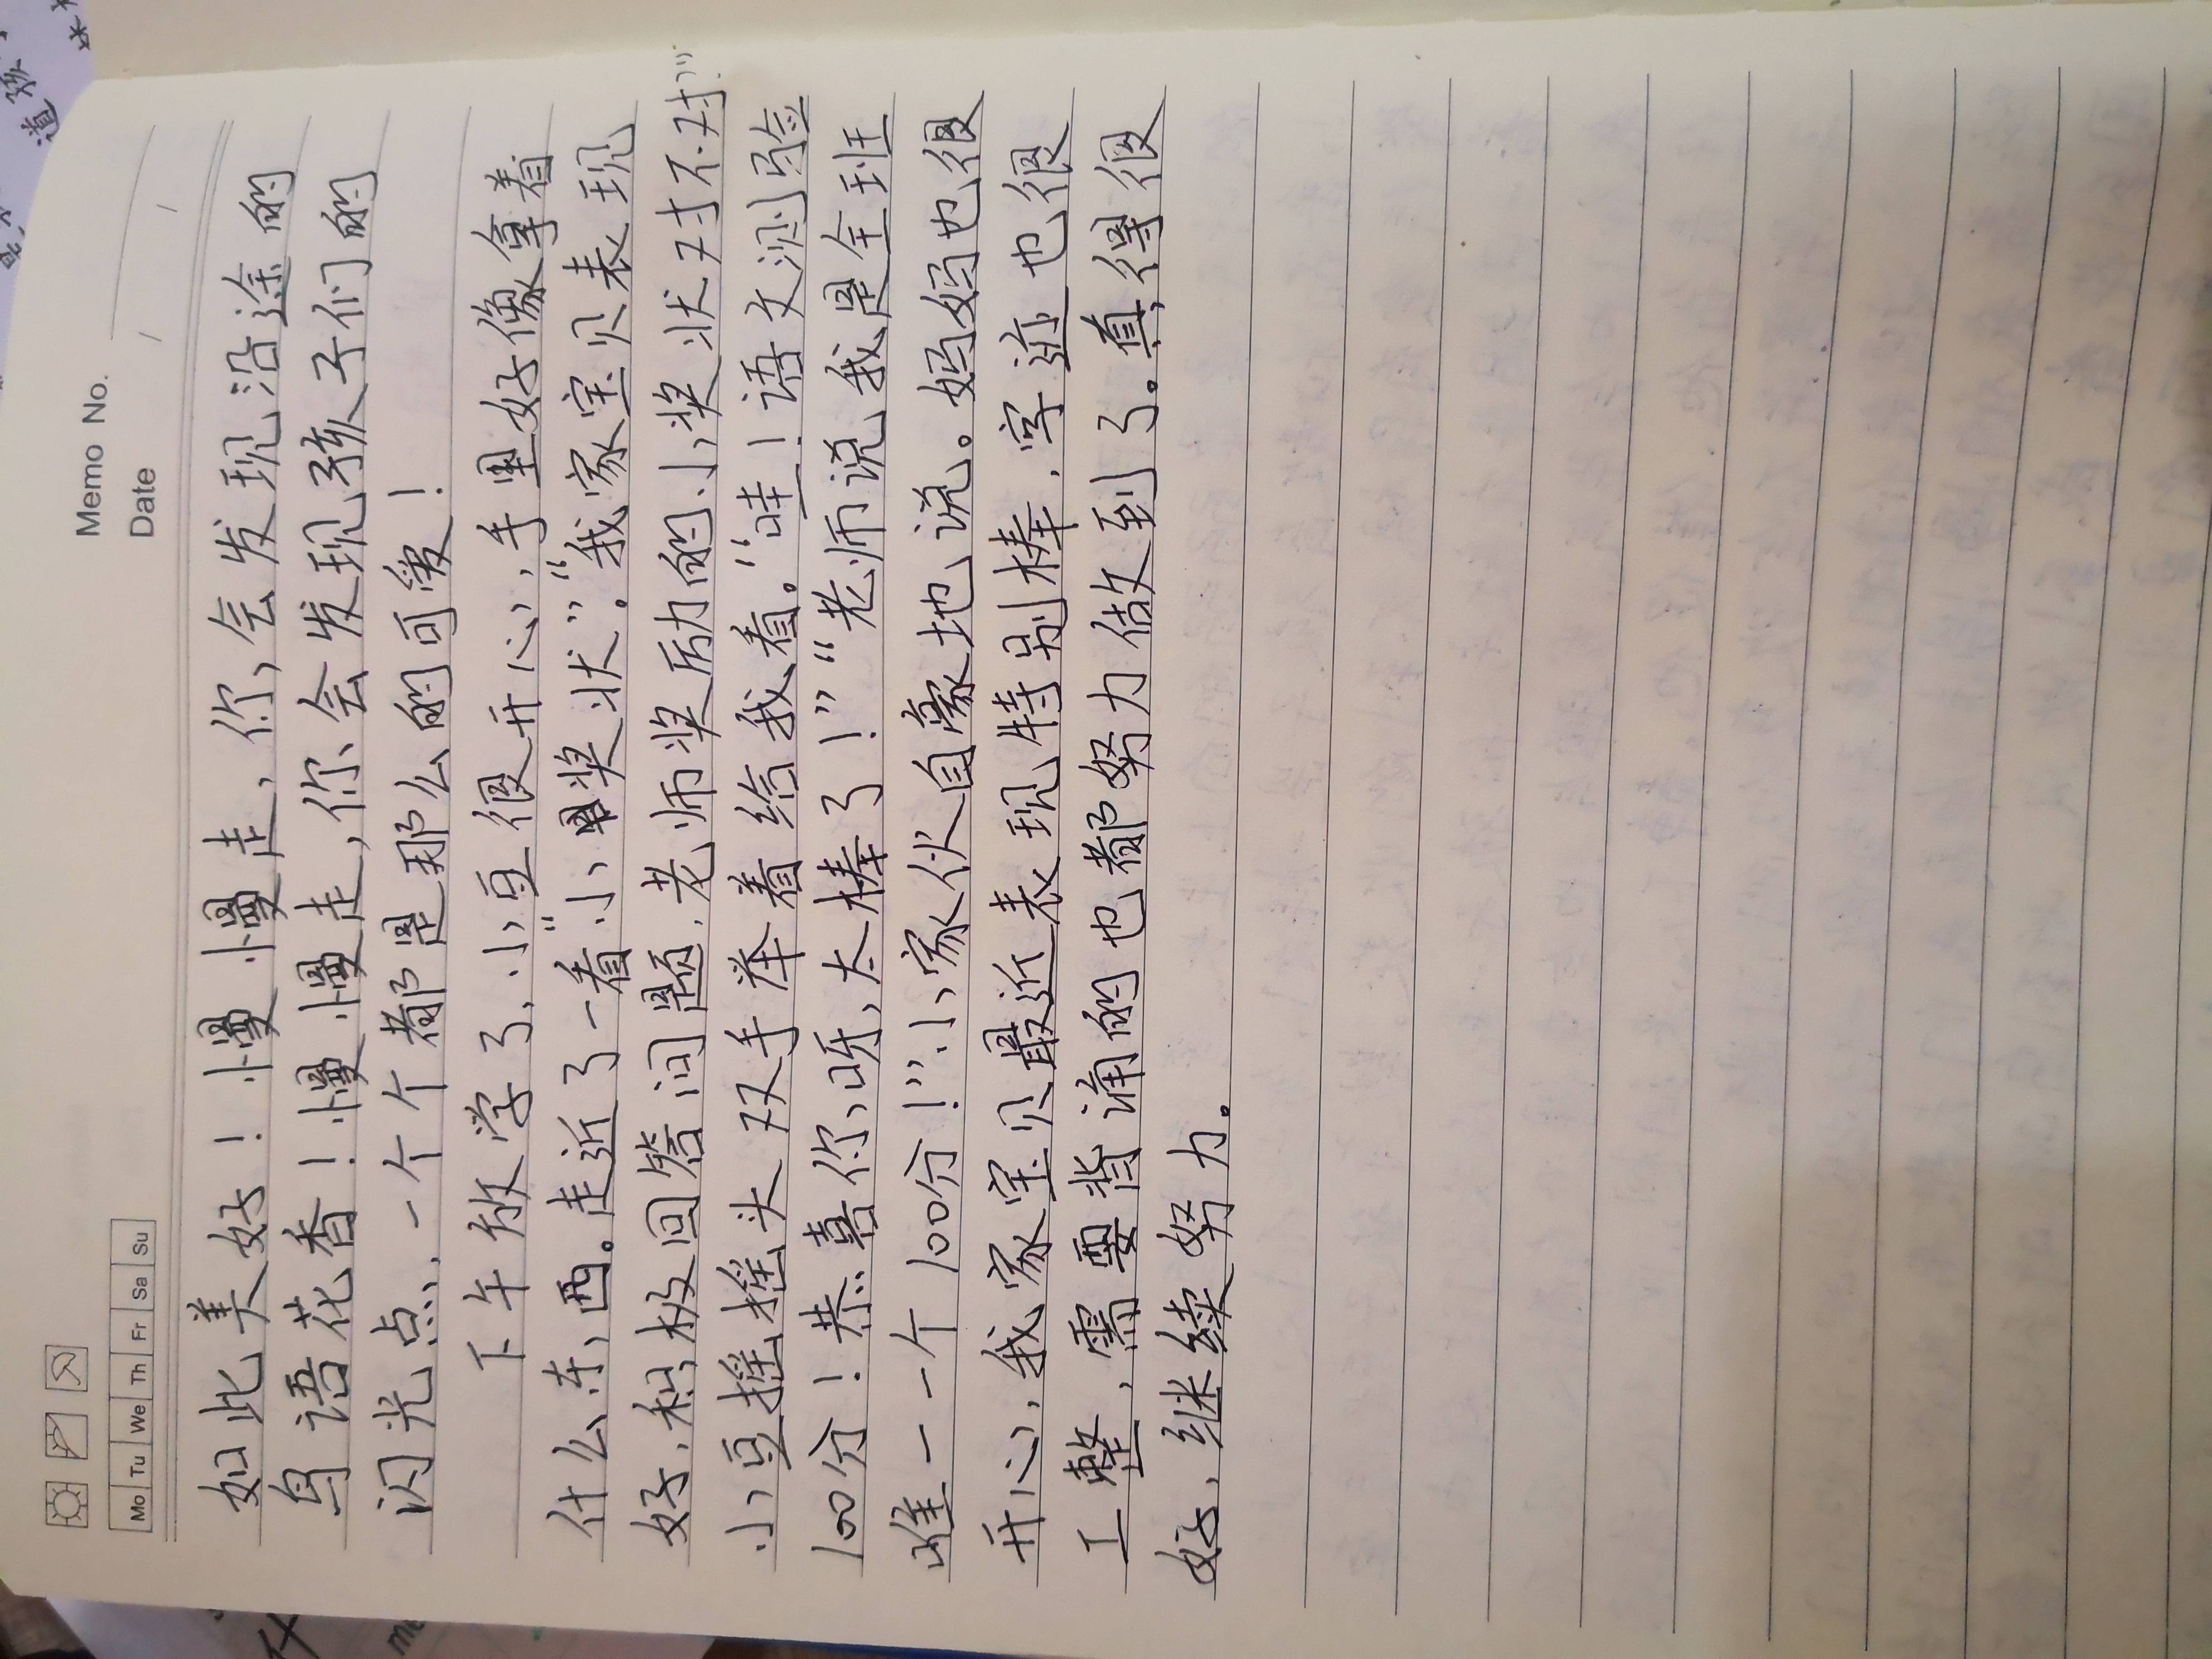 Memo No.
Mo Tu We Th Fr Sa Su
Date / /
如此美好！慢慢走，你会发现沿途的
鸟语花香！慢慢走，你会发现孩子们的
闪光点，一个个都是那么的可爱！
下午放学了，小豆很开心，手里好像拿着
什么东西。走近了一看“小奖状”。“我家宝贝表现
好，积极回答问题，老师奖励的小奖状对不对”
小豆摇摇头双手举着给我看。“哇！语文测验
100分！恭喜你呀，太棒了！”“老师说我是全班
唯一一个100分！”小家伙自豪地说。妈妈也很
开心，我家宝贝最近表现特别棒，字迹也很
工整，需要背诵的也都努力做到了。真得很
好，继续努力。
道 孩